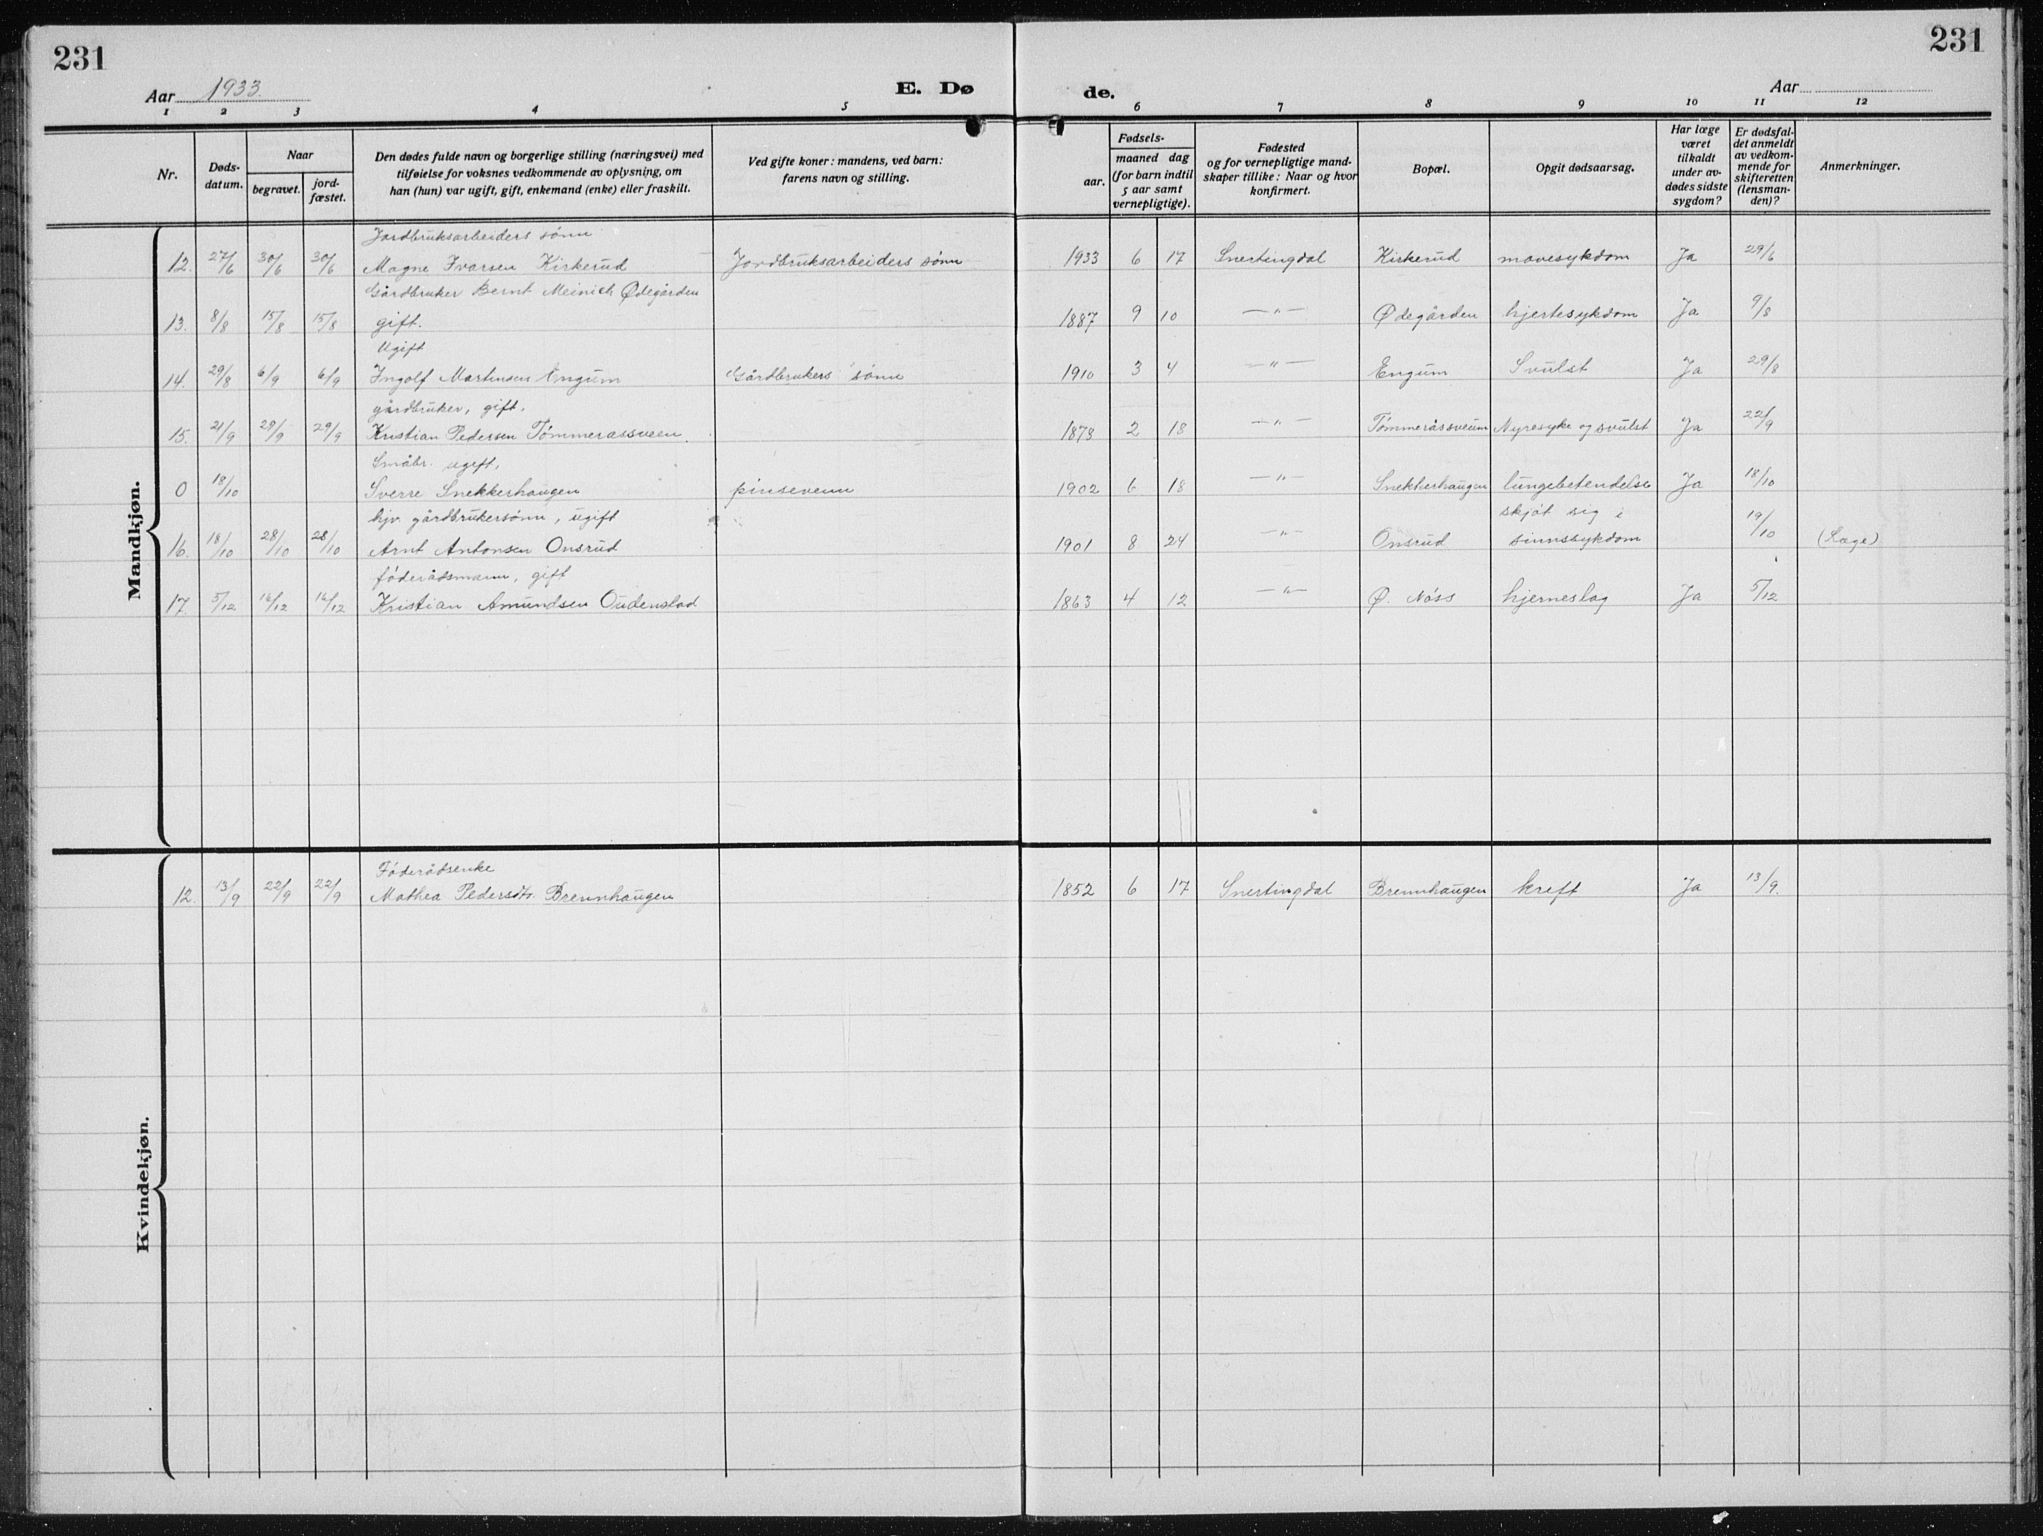 231
231
Aar 1933.
E. Dø
de.
Aar
1 2 3 4 5 6 7 8 9 10 11 12
Nr.
Døds-
datum.
Naar
begravet.
jord-
fæstet.
Den dødes fulde navn og borgerlige stilling (næringsvei) med
tilføielse for voksnes vedkommende av oplysning, om
han (hun) var ugift, gift, enkemand (enke) eller fraskilt.
Ved gifte koner: mandens, ved barn:
farens navn og stilling.
Fødsels-
aar.
maaned dag
(for barn indtil
5 aar samt
vernepligtige).
Fødested
og for vernepligtige mand-
skaper tillike: Naar og hvor
konfirmert.
Bopæl.
Opgit dødsaarsag.
Har læge
været
tilkaldt
under av-
dødes sidste
sygdom?
Er dødsfal-
det anmeldt
av vedkom-
mende for
skifteretten
(lensman-
den)?
Anmerkninger.
Mandkjøn.
Jordbruksarbeiders sønn
12. 27/6 30/6 30/6 Magne Ivarsen Kirkerud Jordbruksarbeiders sønn 1933 6 17 Snertingdal Kirkerud mavesykdom Ja 29/6
Gårdbruker Bernt Meinich Ødegården
13. 8/8 15/8 15/8 gift. 1887 9 10 —„— Ødegården hjertesykdom Ja 9/8
Ugift
14. 29/8 6/9 6/9 Ingolf Martinsen Engum Gårdbrukers sønn 1910 3 4 —„— Engum Svulst Ja 29/8
gårdbruker, gift.
15. 21/9 29/9 29/9 Kristian Pedersen Tømmeråssveen. 1873 2 18 —„— Tømmeråssveum Nyresyke og svulst Ja 22/9
Småbr. ugift.
0 18/10 Sverre Snekkerhaugen pinsevenn 1902 6 18 —„— Snekkerhaugen lungebetendelse Ja 18/10
hjv. gårdbrukersønn, ugift skjøt sig i
16. 18/10 28/10 28/10 Arnt Antonsen Onsrud 1901 8 24 —„— Onsrud sinnssykdom 19/10 (Læge)
føderådsmann, gift
17. 5/12 16/12 16/12 Kristian Amundsen Oudenslad 1863 4 12 —„— Ø. Nøss hjerneslag Ja 5/12
Kvindekjøn.
Føderådsenke
12. 13/9 22/9 22/9 Mathea Pedersdtr. Brennhaugen 1852 6 17 Snertingdal Brennhaugen kreft Ja 13/9.